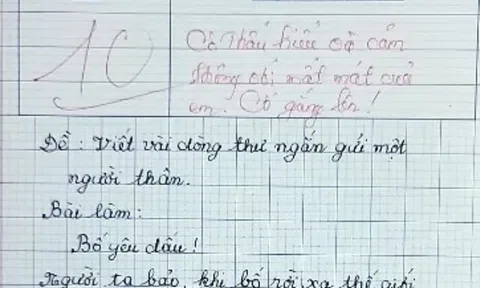 10
Cô thấu hiểu và cảm
thông với mất mát của
em. Cố gắng lên!
Đề: Viết vài dòng thư ngắn gửi một
người thân.
Bài làm:
Bố yêu dấu!
Người ta bảo, khi bố rời xa thế giới